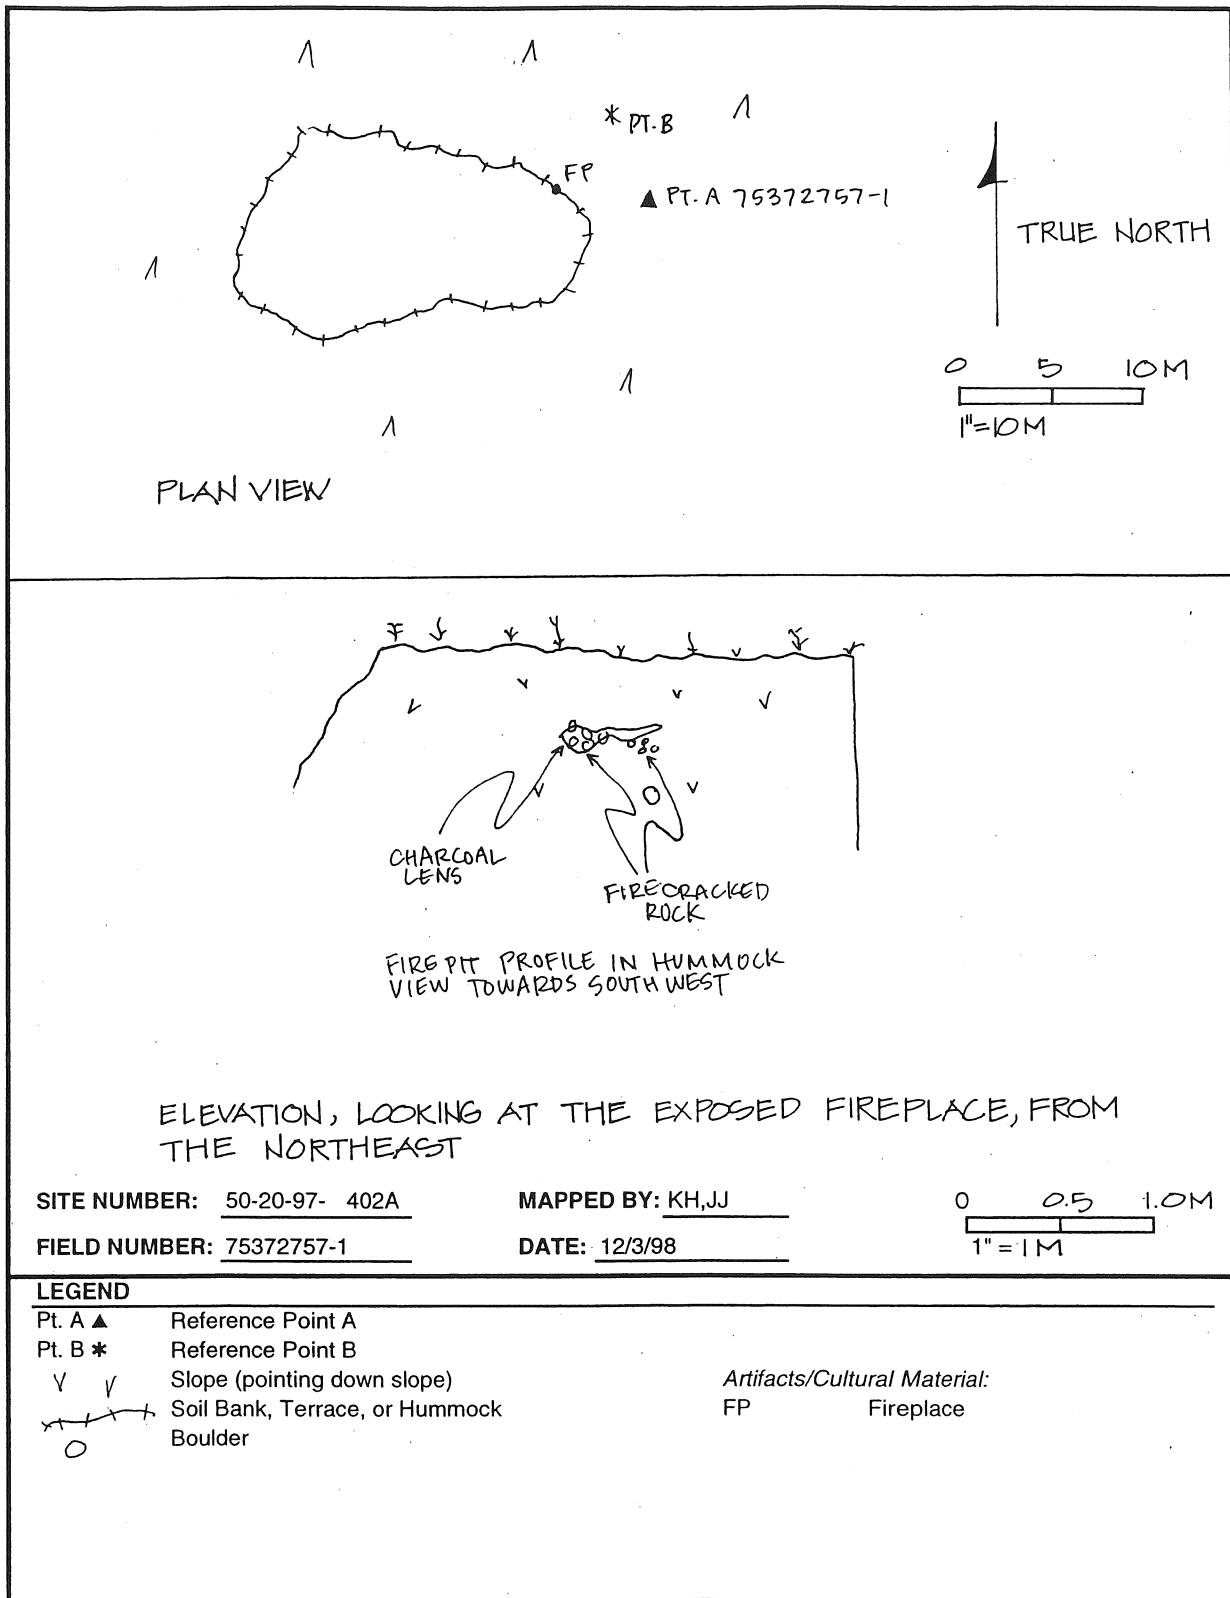 PT.B
FP
PT. A 75372757-1
TRUE NORTH
0 5 10M
1"=10M
PLAN VIEW
CHARCOAL
LENS
FIRECRACKED
ROCK
FIRE PIT PROFILE IN HUMMOCK
VIEW TOWARDS SOUTHWEST
ELEVATION, LOOKING AT THE EXPOSED FIREPLACE, FROM
THE NORTHEAST
SITE NUMBER: 50-20-97- 402A
MAPPED BY: KH,JJ
0 0.5 1.0M
FIELD NUMBER: 75372757-1
DATE: 12/3/98
1" = 1M
LEGEND
Pt. A Reference Point A
Pt. B Reference Point B
Slope (pointing down slope)
Artifacts/Cultural Material:
Soil Bank, Terrace, or Hummock
FP Fireplace
Boulder